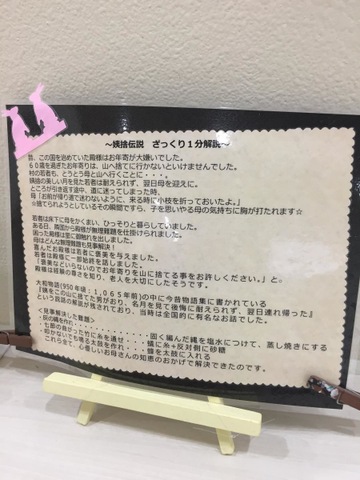 ～姨捨伝説　ざっくり１分解説～
昔、この国を治めていた殿様はお年寄が大嫌いでした。
６０歳を過ぎたお年寄りは、山へ捨てに行かないといけませんでした。
村の若者も、とうとう母と山へ行くことに・・・。
姨捨の美しい月を見た若者は耐えられず、翌日母を迎えに。
ところが引き返す途中、道に迷ってしまった時、
母「お前が帰り道で迷わないように、来る時に小枝を折っておいたよ。」
☆捨てられようとしているその瞬間ですら、子を思いやる母の気持ちに胸が打たれます☆
若者は床下に母をかくまい、ひっそりと暮らしていました。
ある日、隣国から殿様が無理難題を仕掛けられました。
困った殿様は里に御触れを出しました。
母はどんな無理難題も見事解決！
喜んだお殿様は若者に褒美を与えました。
若者は殿様に一部始終を話しました。
「褒美などいらないのでお年寄りを山に捨てる事をお許しください。」と。
殿様は経験の尊さを知り、老人を大切にしたとさ。
大和物語(950年頃：1,065年前)の中に今昔物語集に書かれている
『姨をこの山に捨てた男がおり、名月を見て後悔に耐えられず、翌日連れ帰った』
という説話の解説が残されており、当時は全国的に有名なお話でした。
＜見事解決！した難題＞
灰の縄を作れ・・・・・・・・・・・固く編んだ縄を塩水につけて、蒸し焼きにする
七節の曲がった竹に糸を通せ・・・・蟻に糸+反対側に砂糖
叩かないでも鳴る太鼓を作れ・・・・蜂を太鼓に入れる
これら全て、心優しいお母さんの知恵のおかげで解決できたのです。